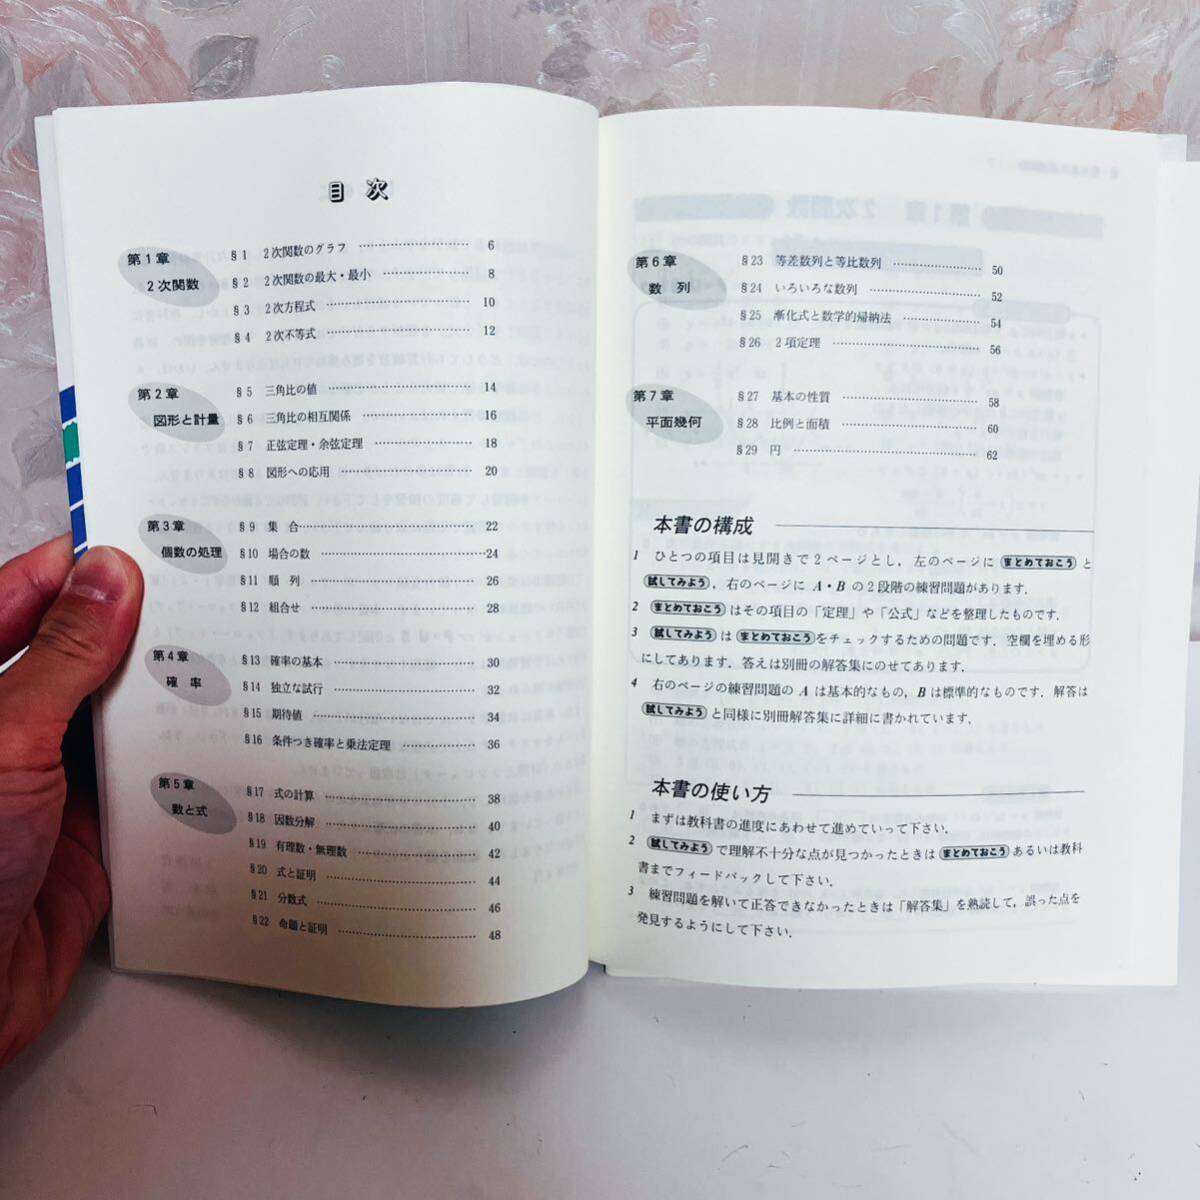 目次
第1章
2次関数
§1 2次関数のグラフ ……………… 6
§2 2次関数の最大・最小 ……………… 8
§3 2次方程式 ……………… 10
§4 2次不等式 ……………… 12
第2章
図形と計量
§5 三角比の値 ……………… 14
§6 三角比の相互関係 ……………… 16
§7 正弦定理・余弦定理 ……………… 18
§8 図形への応用 ……………… 20
第3章
個数の処理
§9 集合 ……………… 22
§10 場合の数 ……………… 24
§11 順列 ……………… 26
§12 組合せ ……………… 28
第4章
確率
§13 確率の基本 ……………… 30
§14 独立な試行 ……………… 32
§15 期待値 ……………… 34
§16 条件つき確率と乗法定理 ……………… 36
第5章
数と式
§17 式の計算 ……………… 38
§18 因数分解 ……………… 40
§19 有理数・無理数 ……………… 42
§20 式と証明 ……………… 44
§21 分数式 ……………… 46
§22 命題と証明 ……………… 48
第6章
数列
§23 等差数列と等比数列 ……………… 50
§24 いろいろな数列 ……………… 52
§25 漸化式と数学的帰納法 ……………… 54
§26 2項定理 ……………… 56
第7章
平面幾何
§27 基本の性質 ……………… 58
§28 比例と面積 ……………… 60
§29 円 ……………… 62
本書の構成
1 ひとつの項目は見開きで2ページとし，左のページに まとめておこう と
試してみよう，右のページに A・B の2段階の練習問題があります．
2 まとめておこう はその項目の「定理」や「公式」などを整理したものです．
3 試してみよう は まとめておこう をチェックするための問題です．空欄を埋める形
にしてあります．答えは別冊の解答集にのせてあります．
4 右のページの練習問題の A は基本的なもの，B は標準的なものです．解答は
試してみよう と同様に別冊解答集に詳細に書かれています．
本書の使い方
1 まずは教科書の進度にあわせて進めていって下さい．
2 試してみよう で理解不十分な点が見つかったときは まとめておこう あるいは教科
書までフィードバックして下さい．
3 練習問題を解いて正答できなかったときは「解答集」を熟読して，誤った点を
発見するようにして下さい．